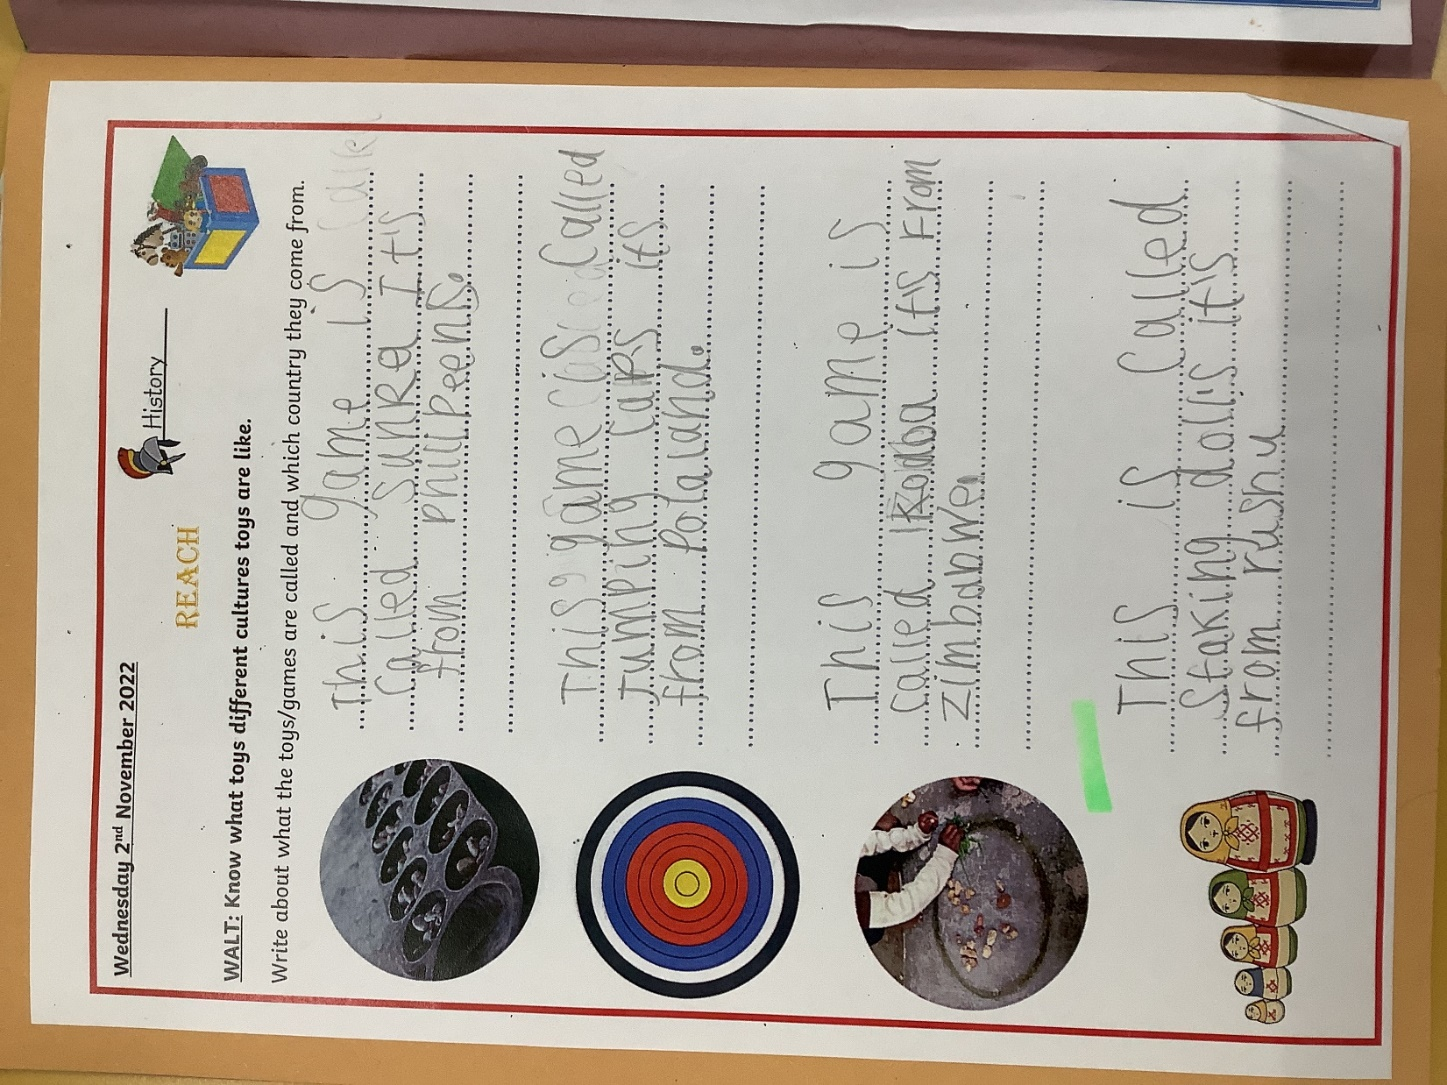 Wednesday 2nd November 2022
History
REACH
WALT: Know what toys different cultures toys are like.
Write about what the toys/games are called and which country they come from.
This game is
called sunka It's
from philipeens.
This game called
Jumping caps its
from Polaland.
This game is
called Kodba it's From
zimbabwe.
This is called
Staking doll's it's
from rushu